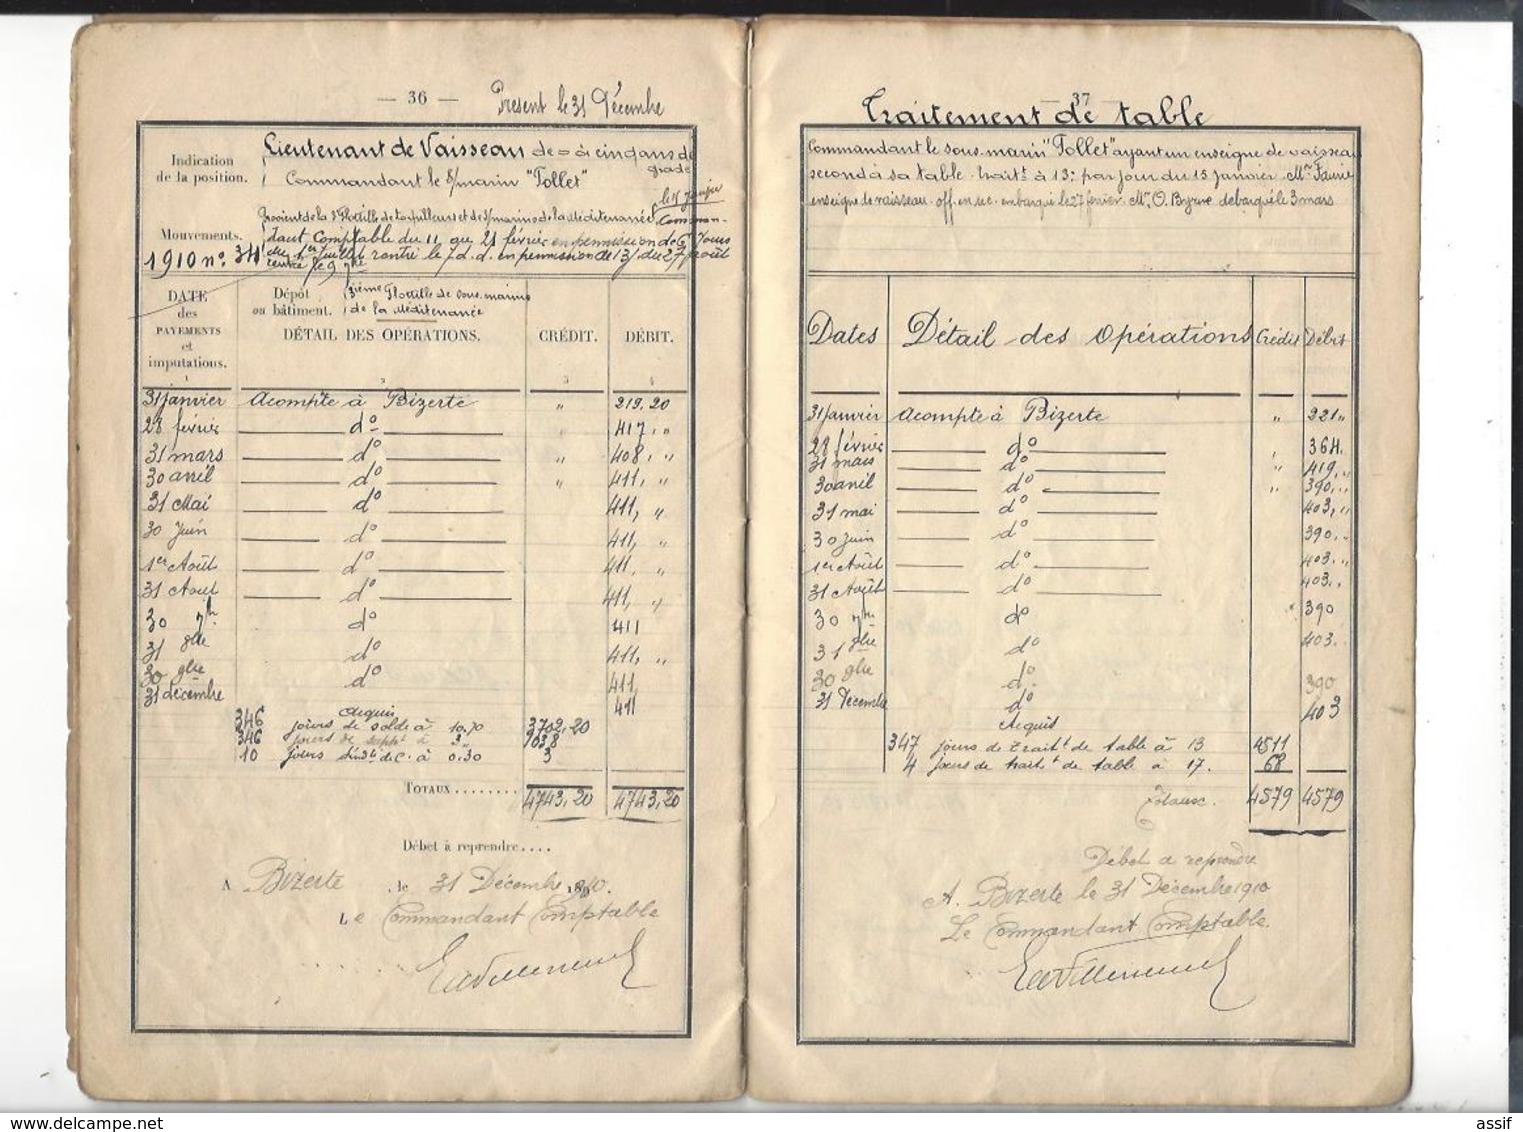 — 36 — Présent le 31 Décembre
Indication
de la position.
Lieutenant de Vaisseau de - à cinq ans de
grade
Commandant le s/marin "Follet"
le 15 Janvier
Mouvements.
1910 n° 34
Provient de la 3e Flottille de torpilleurs et de s/marins de la Méditerranée Comman-
dant Comptable du 11 au 21 février en permission de 6 Jours
du 1er Juillet rentré le 7 d.d. en permission de 13j du 27 août
rentré le 9 7bre
DATE
des
PAYEMENTS
et
imputations.
Dépôt
ou bâtiment.
3ième Flottille de sous-marins
de la Méditerranée
DÉTAIL DES OPÉRATIONS. CRÉDIT. DÉBIT.
1 2 3 4
31 janvier Acompte à Bizerte " 219,20
28 février d° " 417, "
31 mars d° " 408, "
30 avril d° " 411, "
31 Mai d° 411, "
30 Juin d° 411, "
1er Août d° 411, "
31 Aout d° 411, "
30 7bre d° 411
31 8bre d° 411, "
30 9bre d° 411,
31 décembre 411
Acquis
346 jours de solde à 10.70 3702,20
346 jours de suppt à 3,, 1038
10 jours d'indté de C. à 0.30 3
TOTAUX........ 4743,20 4743,20
Débet à reprendre....
A Bizerte , le 31 Décembre 1910.
Le Commandant Comptable
— 37 —
Traitement de table
Commandant le sous-marin "Follet" ayant un enseigne de vaisseau
second à sa table. trait.t à 13f par jour du 15 janvier. Mr Fauvre
enseigne de vaisseau. off. en sec. embarqué le 27 février. Mr O. Byrne débarqué le 3 mars
Dates Détail des Opérations Crédit Débit
31 janvier Acompte à Bizerte " 321 "
28 février d° " 364.
31 mars d° " 419, "
30 avril d° " 390, "
31 mai d° 403, "
30 juin d° 390, "
1er Août d° 403. "
31 Août d° 403. "
30 7bre d° 390
31 8bre d° 403.
30 9bre d° 390
31 Décembre d° 403
Acquis
347 jours de trait.t de table à 13 4511
4 jours de trait.t de table à 17. 68
Totaux. 4579 4579
Débet à reprendre
A. Bizerte le 31 Décembre 1910
Le Commandant Comptable.
assif